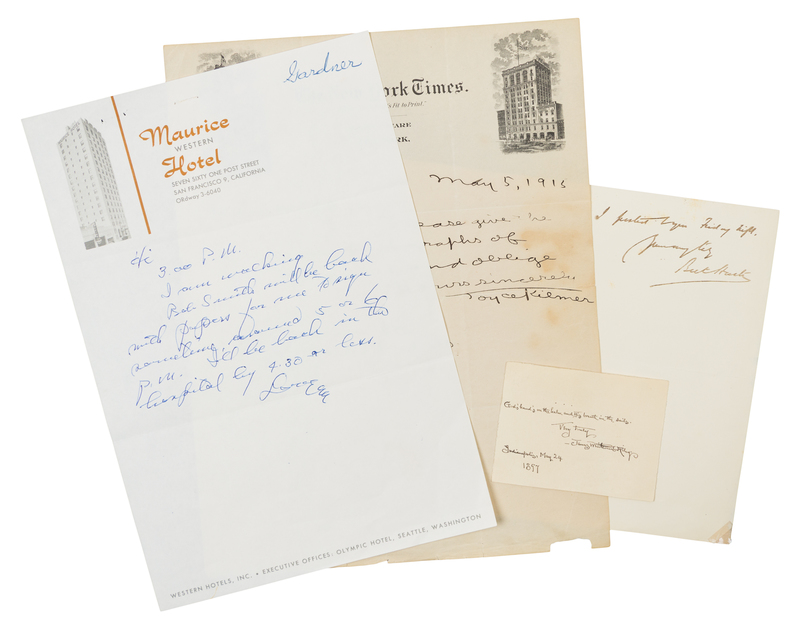 Gardner
Maurice
WESTERN
Hotel
SEVEN SIXTY ONE POST STREET
SAN FRANCISCO 9, CALIFORNIA
ORdway 3-6040
Hi
3:00 P.M.
I am walking
Bob Smith will be back
with papers for me to sign
sometime around 5 or 6
P.M. I'll be back in the
hospital by 4:30 or less.
Love
WESTERN HOTELS, INC. • EXECUTIVE OFFICES: OLYMPIC HOTEL, SEATTLE, WASHINGTON
ork Times.
's Fit to Print."
ARE
RK.
May 5, 1915
ease give
graphs of
nd oblige
ours sincerely
Joyce Kilmer
I
Bret Harte
God's hand is on the helm and His breath in the sails.
Very Truly,
Indianapolis, May 24
1897